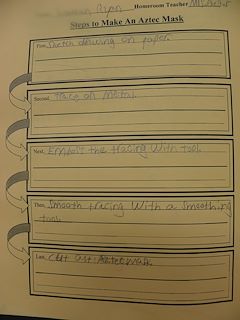 Ryan Homeroom Teacher
Steps to Make An Aztec Mask
First, Sketch drawing on paper
Second, Trace on metal
Next, Emboss the tracing with tool
Then, Smooth tracing With a smoothing
tool
Last, Cut out Aztec Mask